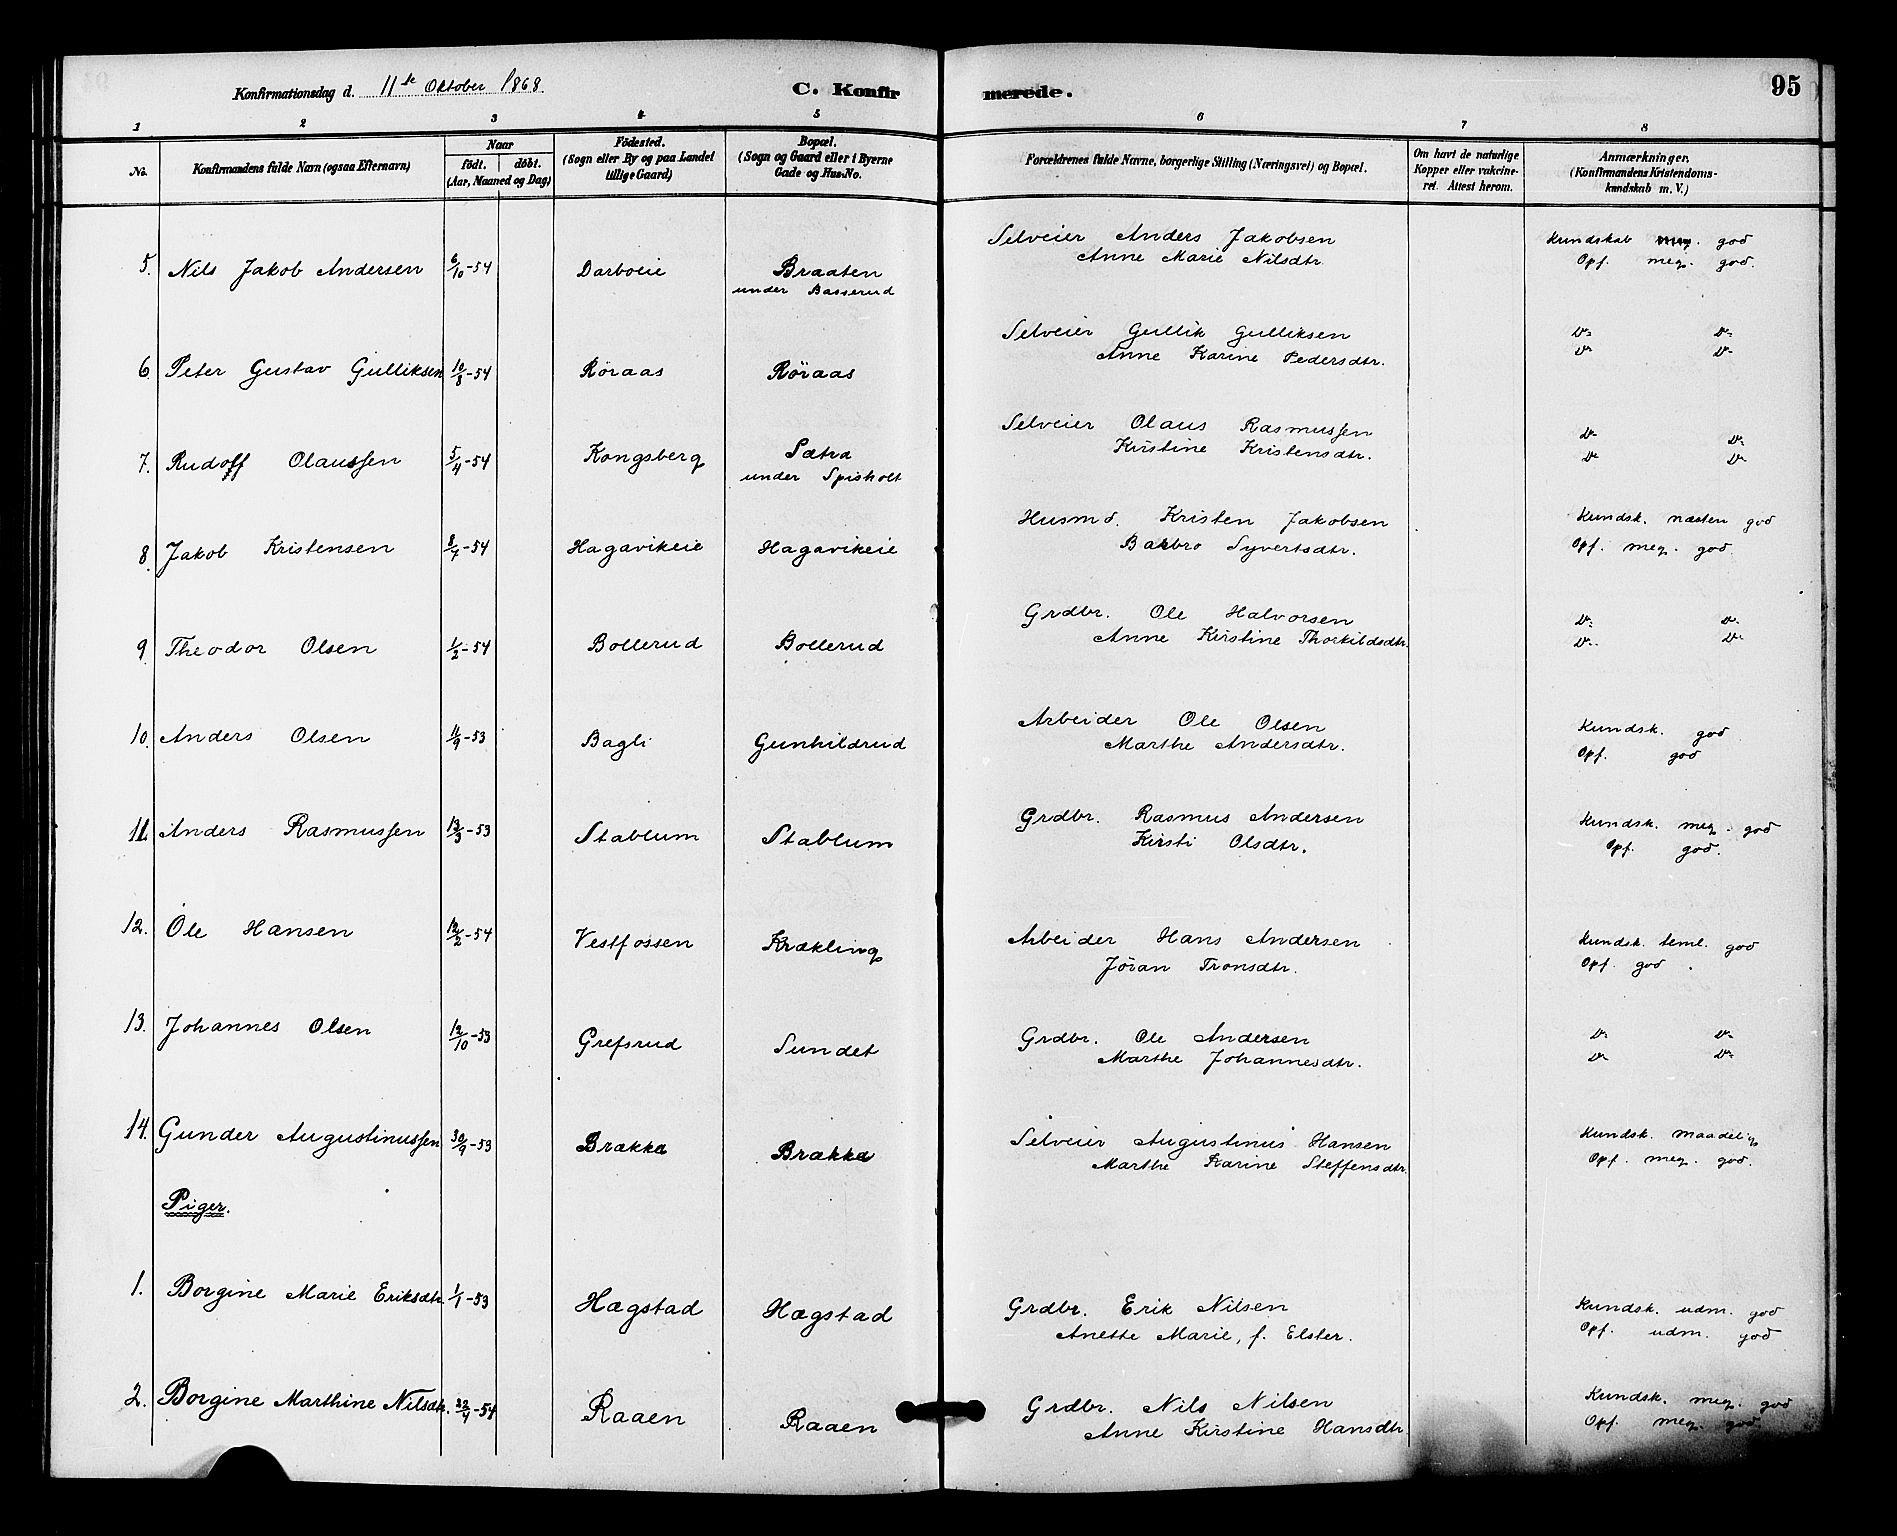 Konfirmationsdag d. 11te Oktober 1868.
C. Konfirmerede.
95
1 2 3 4 5 6 7 8
No.
Konfirmandens fulde Navn (ogsaa Efternavn)
Naar
födt. döbt.
(Aar, Maaned og Dag)
Födested.
(Sogn eller By og paa Landet
tillige Gaard.)
Bopæl.
(Sogn og Gaard eller i Byerne
Gade og Hus-No.
Forældrenes fulde Navne, borgerlige Stilling (Næringsvei) og Bopæl.
Om havt de naturlige
Kopper eller vakcine-
ret. Attest herom.
Anmærkninger.
(Konfirmandens Kristendoms-
kundskab m. V.)
5. Nils Jakob Andersen 6/10-54 Darboeie Braaten
under Basserud
Selveier Anders Jakobsen
Anne Marie Nilsdtr.
Kundskab meg. god
Opf. meg. god.
6. Peter Gustav Gulliksen 10/8-54 Röraas Röraas
Selveier Gullik Gulliksen
Anne Karine Pedersdtr.
D- D-
D- D-
7. Rudolf Olaussen 5/4-54 Kongsberg Sætra
under Spisholt
Selveier Olaus Rasmussen
Kristine Kristensdtr.
D- D-
D- D-
8. Jakob Kristensen 8/7-54 Hagavikeie Hagavikeie
Husmd. Kristen Jakobsen
Barbro Syvertsdtr.
Kundsk. næsten god
Opf. meg. god.
9. Theodor Olsen 1/2-54 Bollerud Bollerud
Grdbr. Ole Halvorsen
Anne Kirstine Thorkildsdtr.
D- D-
D- D-
10. Anders Olsen 11/9-53 Bagli Gunhildrud
Arbeider Ole Olsen
Marthe Andersdtr.
Kundsk. god
Opf. god
11. Anders Rasmussen 13/3-53 Stablum Stablum
Grdbr. Rasmus Andersen
Kirsti Olsdtr.
Kundsk. meg. god
Opf. god.
12. Ole Hansen 12/2-54 Vestfossen Krækling
Arbeider Hans Andersen
Jöran Tronsdtr.
Kundsk. teml. god
Opf. god.
13. Johannes Olsen 12/10-53 Grefsrud Sundet
Grdbr. Ole Andersen
Marthe Johannesdtr.
D- D-
D- D-
14. Gunder Augustinussen 30/9-53 Brække Brække
Selveier Augustinus Hansen
Marthe Karine Steffensdtr.
Kundsk. maadelig
Opf. meg. god.
Piger.
1. Borgine Marie Eriksdtr. 1/1-53 Hægstad Hægstad
Grdbr. Erik Nilsen
Anette Marie, f. Elster.
Kundsk. udm. god
Opf. udm. god
2. Borgine Marthine Nilsdtr. 22/4-54 Raaen Raaen
Grdbr. Nils Nilsen
Anne Kirstine Hansdtr
Kundsk. meg. god
Opf. meg. god.